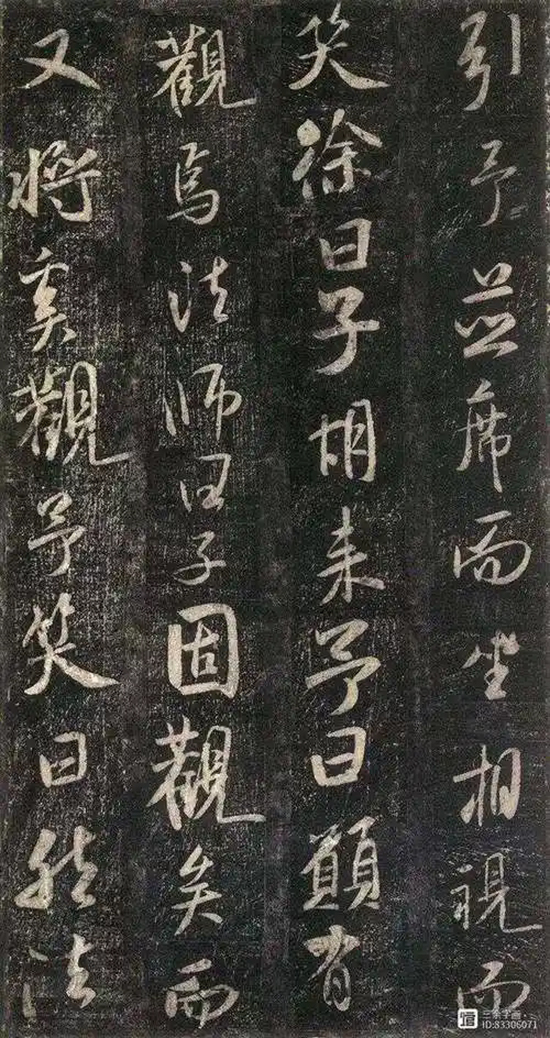 引予並席而坐相視而
笑徐曰子胡来予曰願有
觀焉法師曰子固觀矣而
又將奚觀予笑曰然法
ID:83306071